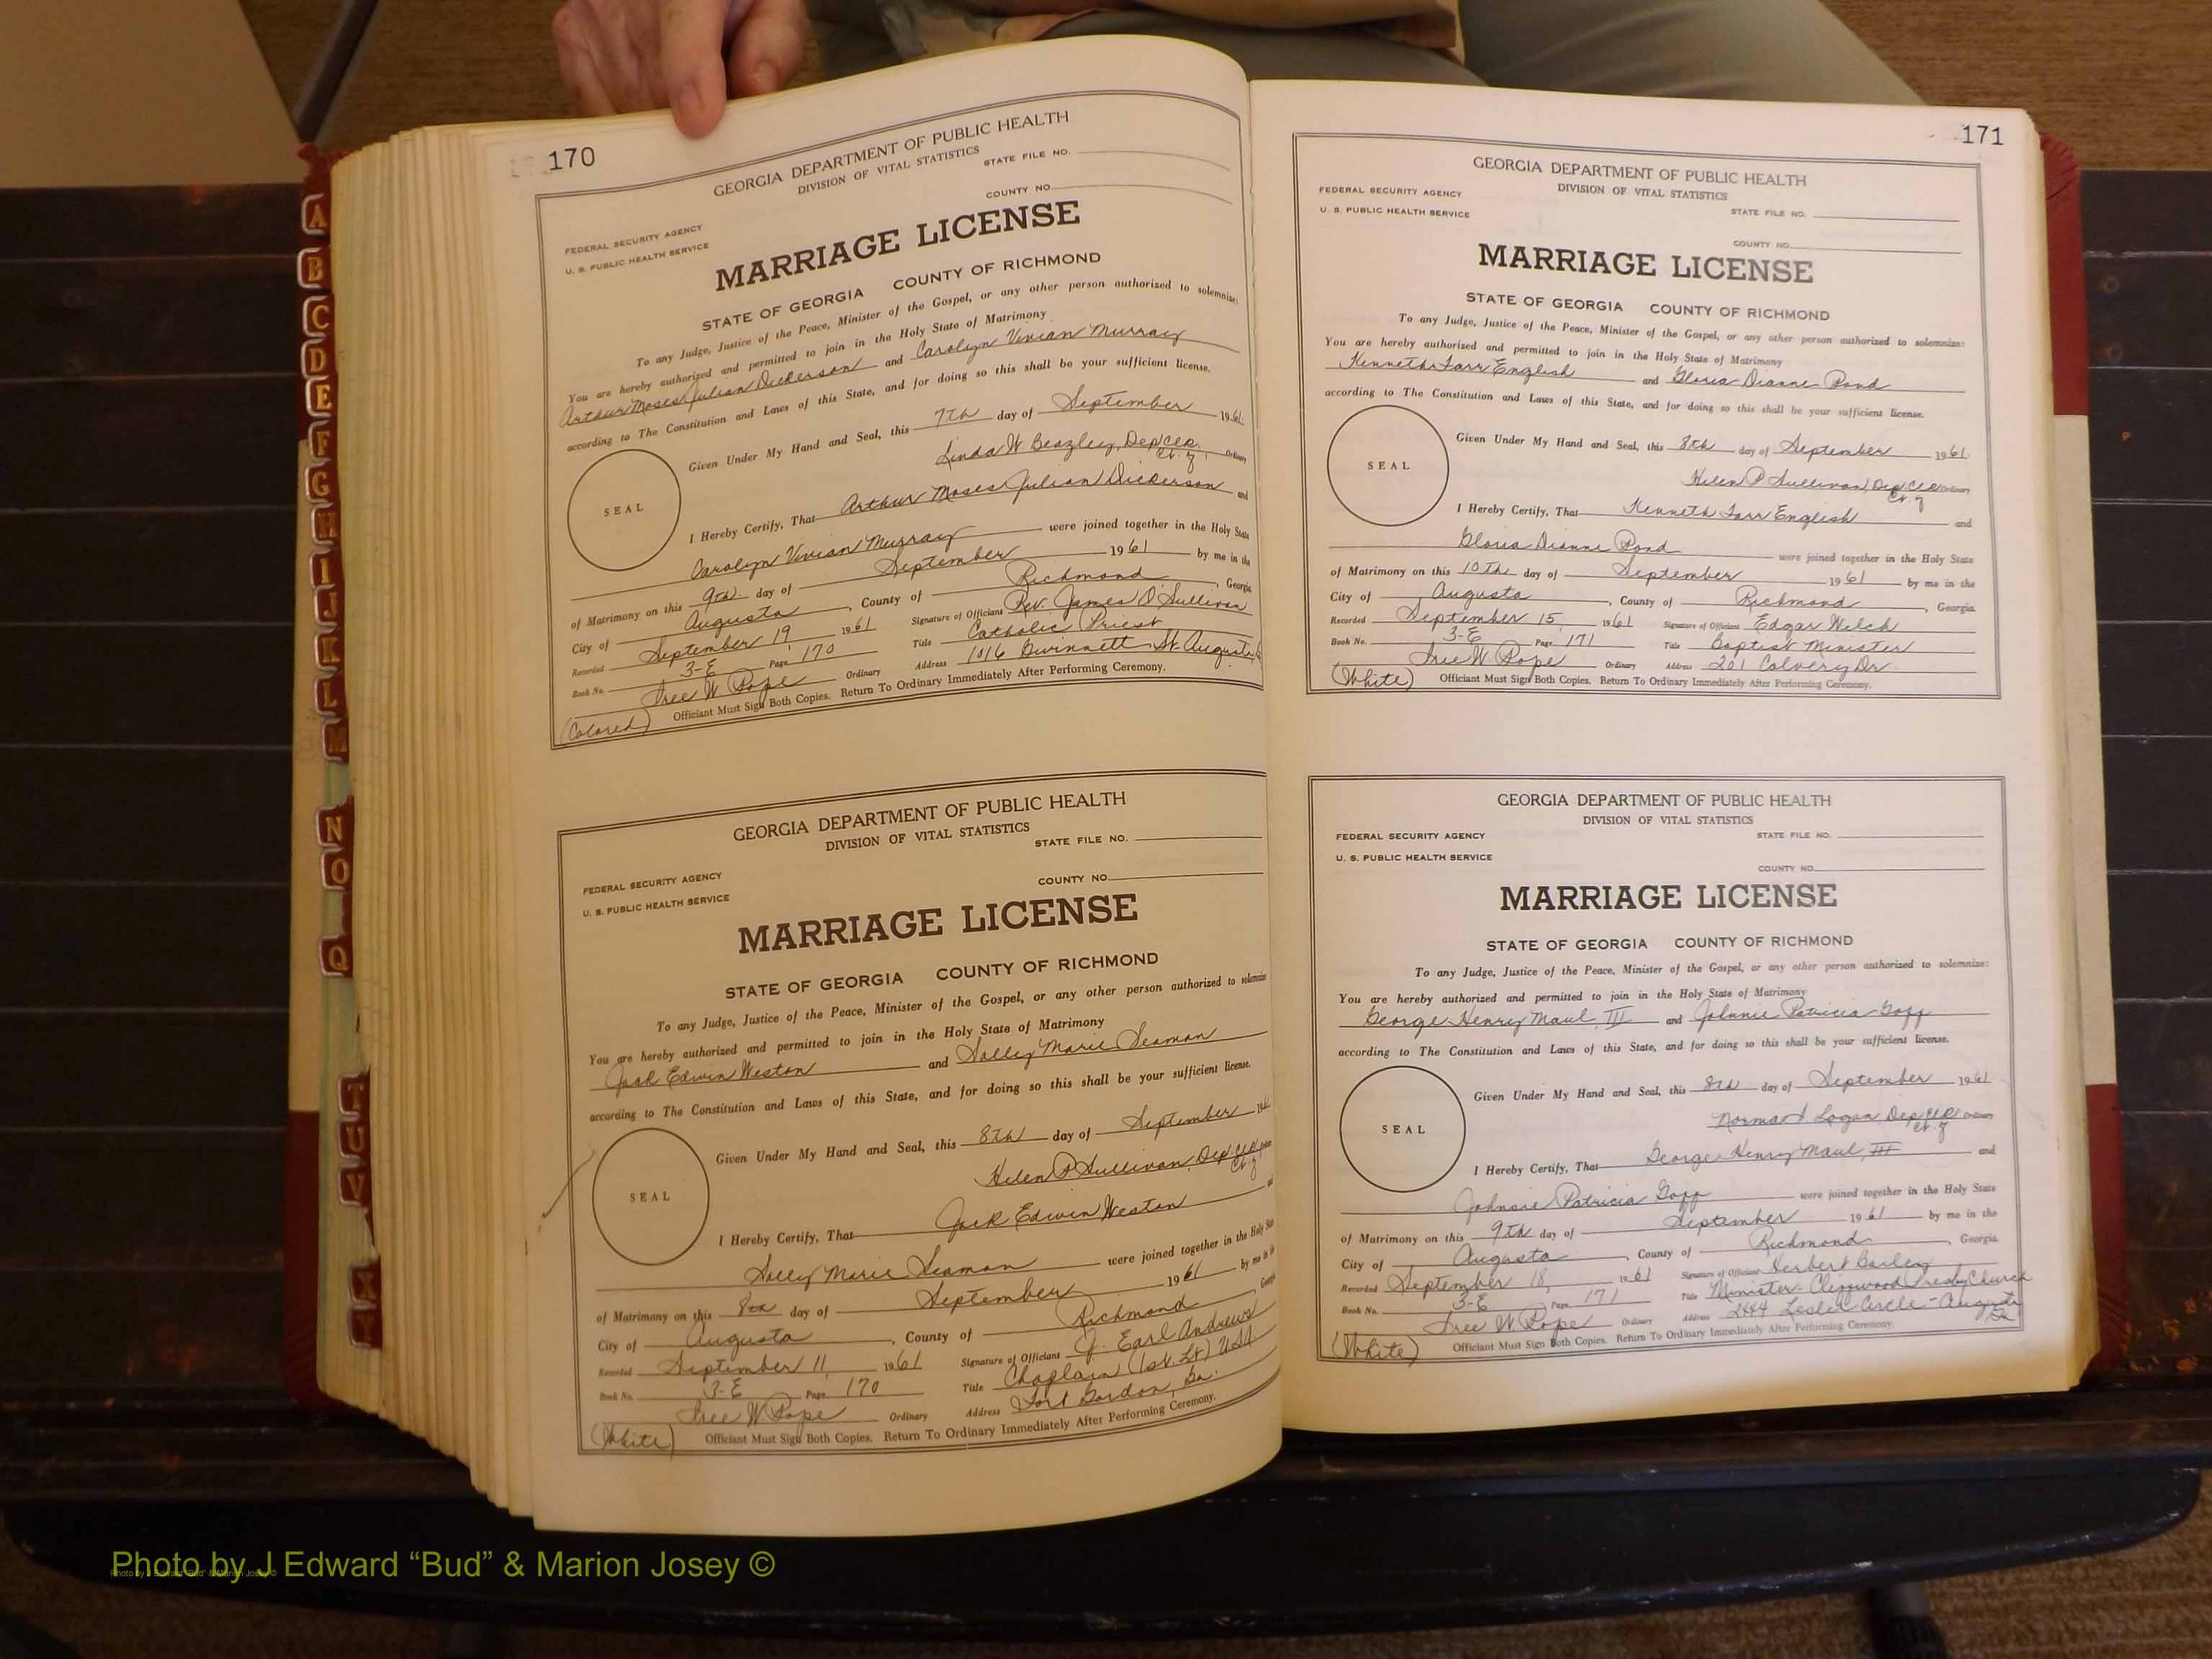 170
GEORGIA DEPARTMENT OF PUBLIC HEALTH
DIVISION OF VITAL STATISTICS
STATE FILE NO.
COUNTY NO.
FEDERAL SECURITY AGENCY
U. S. PUBLIC HEALTH SERVICE
MARRIAGE LICENSE
STATE OF GEORGIA COUNTY OF RICHMOND
To any Judge, Justice of the Peace, Minister of the Gospel, or any other person authorized to solemnize:
You are hereby authorized and permitted to join in the Holy State of Matrimony
Arthur Moses Julian Dickerson and Carolyn Vivian Murray
according to The Constitution and Laws of this State, and for doing so this shall be your sufficient license.
Given Under My Hand and Seal, this 7th day of September 1961
Linda W Beazley, Dep Clk. Ordinary
Ct. of
SEAL
I Hereby Certify, That Arthur Moses Julian Dickerson and
Carolyn Vivian Murray were joined together in the Holy State
of Matrimony on this 9th day of September 1961 by me in the
City of Augusta, County of Richmond, Georgia.
Recorded September 19 1961 Signature of Officiant Rev. James O'Sullivan
Book No. 3-E Page 170 Title Catholic Priest
Tree W Pope Ordinary Address 1016 St. Augusta
(Colored) Officiant Must Sign Both Copies. Return To Ordinary Immediately After Performing Ceremony.
GEORGIA DEPARTMENT OF PUBLIC HEALTH
DIVISION OF VITAL STATISTICS
STATE FILE NO.
FEDERAL SECURITY AGENCY
COUNTY NO.
U. S. PUBLIC HEALTH SERVICE
MARRIAGE LICENSE
STATE OF GEORGIA COUNTY OF RICHMOND
To any Judge, Justice of the Peace, Minister of the Gospel, or any other person authorized to solemnize
You are hereby authorized and permitted to join in the Holy State of Matrimony
Jack Edwin Weston and Solley Marie Seaman
according to The Constitution and Laws of this State, and for doing so this shall be your sufficient license.
Given Under My Hand and Seal, this 8th day of September 1961
Helen P Sullivan, Dep. Clk
Ct. of
SEAL
I Hereby Certify, That Jack Edwin Weston and
Solley Marie Seaman were joined together in the Holy State
of Matrimony on this 8th day of September 1961 by me in the
City of Augusta, County of Richmond Georgia
Recorded September 11, 1961 Signature of Officiant J. Earl Andrews
Book No. 3-E Page 170 Title Chaplain (1st. Lt) USA
Tree W Pope Ordinary Address Fort Gordon, Ga.
(White) Officiant Must Sign Both Copies. Return To Ordinary Immediately After Performing Ceremony.
171
GEORGIA DEPARTMENT OF PUBLIC HEALTH
DIVISION OF VITAL STATISTICS
FEDERAL SECURITY AGENCY
U. S. PUBLIC HEALTH SERVICE
STATE FILE NO.
COUNTY NO.
MARRIAGE LICENSE
STATE OF GEORGIA COUNTY OF RICHMOND
To any Judge, Justice of the Peace, Minister of the Gospel, or any other person authorized to solemnize:
You are hereby authorized and permitted to join in the Holy State of Matrimony
Kenneth Farr English and Gloria Dianne Pond
according to The Constitution and Laws of this State, and for doing so this shall be your sufficient license.
Given Under My Hand and Seal, this 8th day of September 1961
Helen P Sullivan, Dep. Clk Ordinary
Ct. of
SEAL
I Hereby Certify, That Kenneth Farr English and
Gloria Dianne Pond were joined together in the Holy State
of Matrimony on this 10th day of September 1961 by me in the
City of Augusta, County of Richmond, Georgia.
Recorded September 15, 1961 Signature of Officiant Edgar Welch
Book No. 3-E Page 171 Title Baptist Minister
Tree W Pope Ordinary Address 201 Calvery Dr
(White) Officiant Must Sign Both Copies. Return To Ordinary Immediately After Performing Ceremony.
GEORGIA DEPARTMENT OF PUBLIC HEALTH
DIVISION OF VITAL STATISTICS
FEDERAL SECURITY AGENCY
STATE FILE NO.
U. S. PUBLIC HEALTH SERVICE
COUNTY NO.
MARRIAGE LICENSE
STATE OF GEORGIA COUNTY OF RICHMOND
To any Judge, Justice of the Peace, Minister of the Gospel, or any other person authorized to solemnize:
You are hereby authorized and permitted to join in the Holy State of Matrimony
George Henry Maul, III and Johnnie Patricia Goff
according to The Constitution and Laws of this State, and for doing so this shall be your sufficient license.
Given Under My Hand and Seal, this 8th day of September 1961
Norma Logan Dep Clk Ordinary
Ct. of
SEAL
I Hereby Certify, That George Henry Maul, III and
Johnnie Patricia Goff were joined together in the Holy State
of Matrimony on this 9th day of September 1961 by me in the
City of Augusta, County of Richmond, Georgia.
Recorded September 18, 1961 Signature of Officiant
Book No. 3-E Page 171 Title Minister- Church
Tree W Pope Ordinary Address 2444 Leslie Circle - Augusta
Ga
(White) Officiant Must Sign Both Copies. Return To Ordinary Immediately After Performing Ceremony.
A
B
C
D
E
F
G
H
I
J
K
L
M
N
O
Q
T
U
V
X
Y
Photo by J Edward “Bud” & Marion Josey ©
Photo by J Edward "Bud" & Marion Josey ©